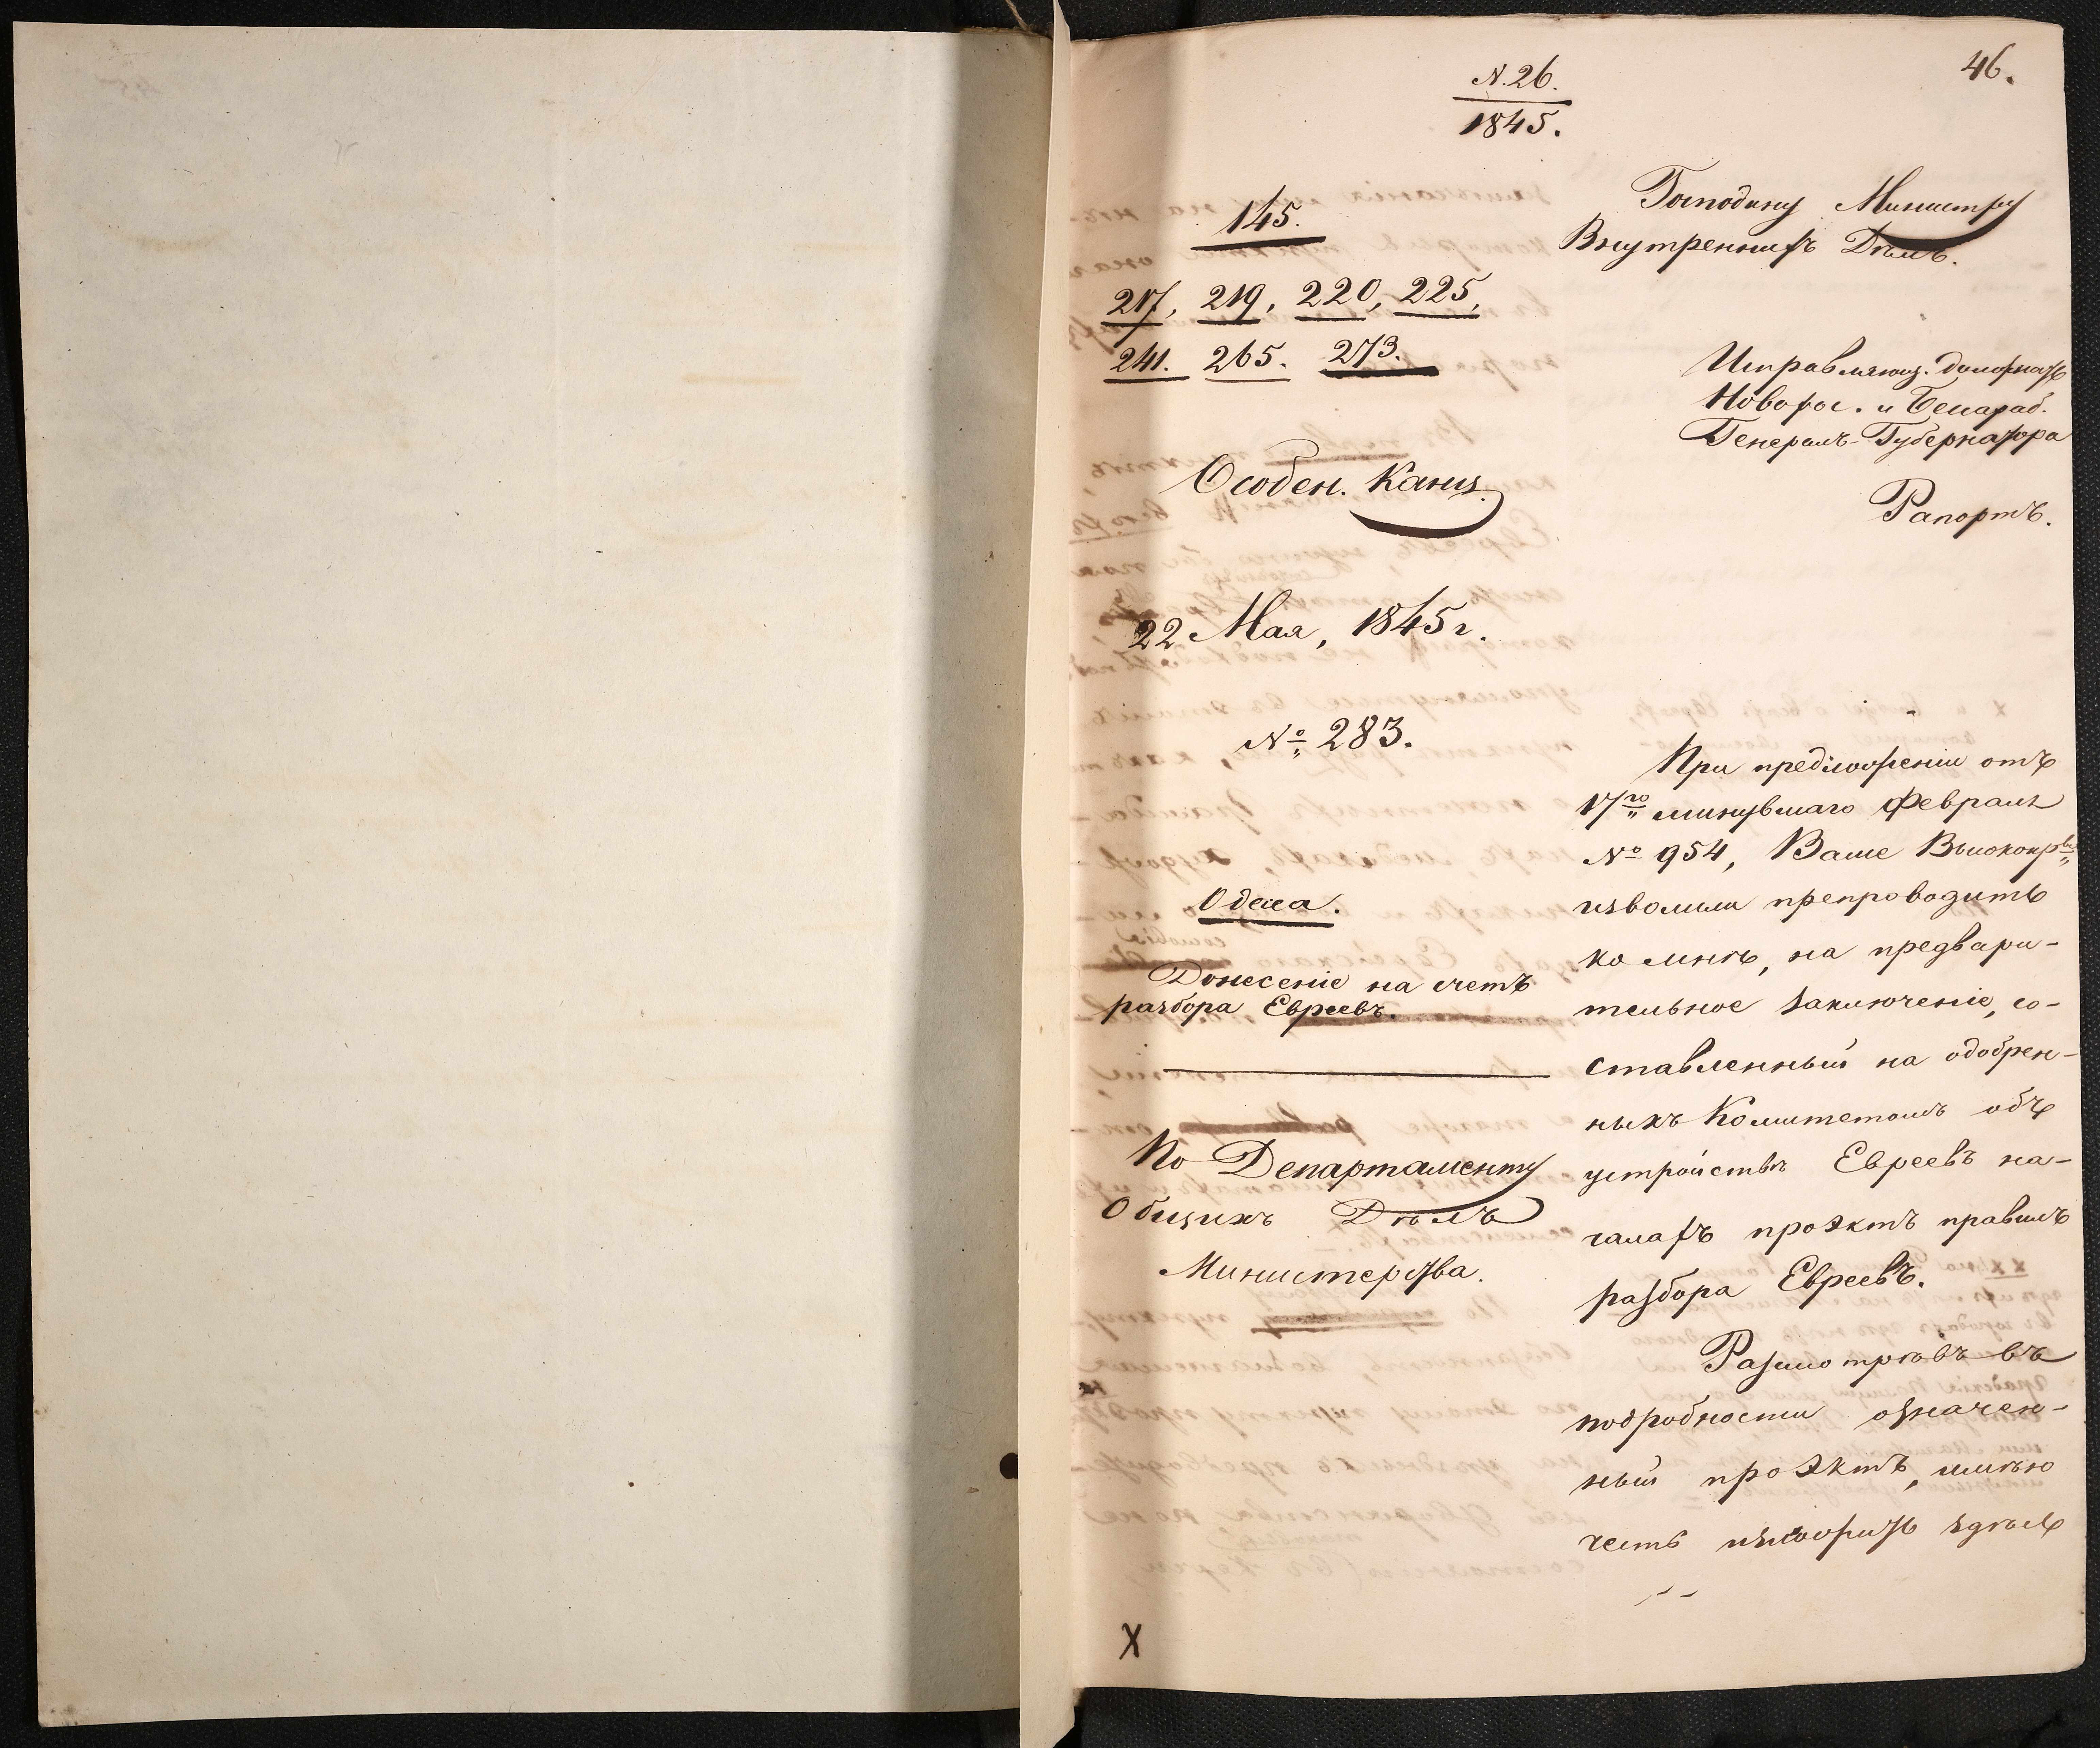 N. 26.
1845.
46.
145.
217, 219, 220, 225,
241. 265. 273.
Особен. Канц.
22 Мая, 1845 г.
№ 283.
Одесса.
Донесеніе на счетъ
разбора Евреевъ.
По Департаменту
Общихъ Дѣлъ
Министерства.
Господину Министру
Внутреннихъ Дѣлъ.
Исправляющ. должность
Новорос. и Бессараб.
Генералъ-Губернатора
Рапортъ.
При предложеніи отъ
17го минувшаго Февраля
№ 954, Ваше Высокопрв
изволили препроводить
ко мнѣ, на предвари-
тельное заключеніе, со-
ставленный на одобрен-
ныхъ Комитетомъ объ
устройствѣ Евреевъ на-
чалахъ проэктъ правилъ
разбора Евреевъ.
Разсмотрѣвъ въ
подробности означен-
ный проэктъ, имѣю
честь изложить здѣсь
X